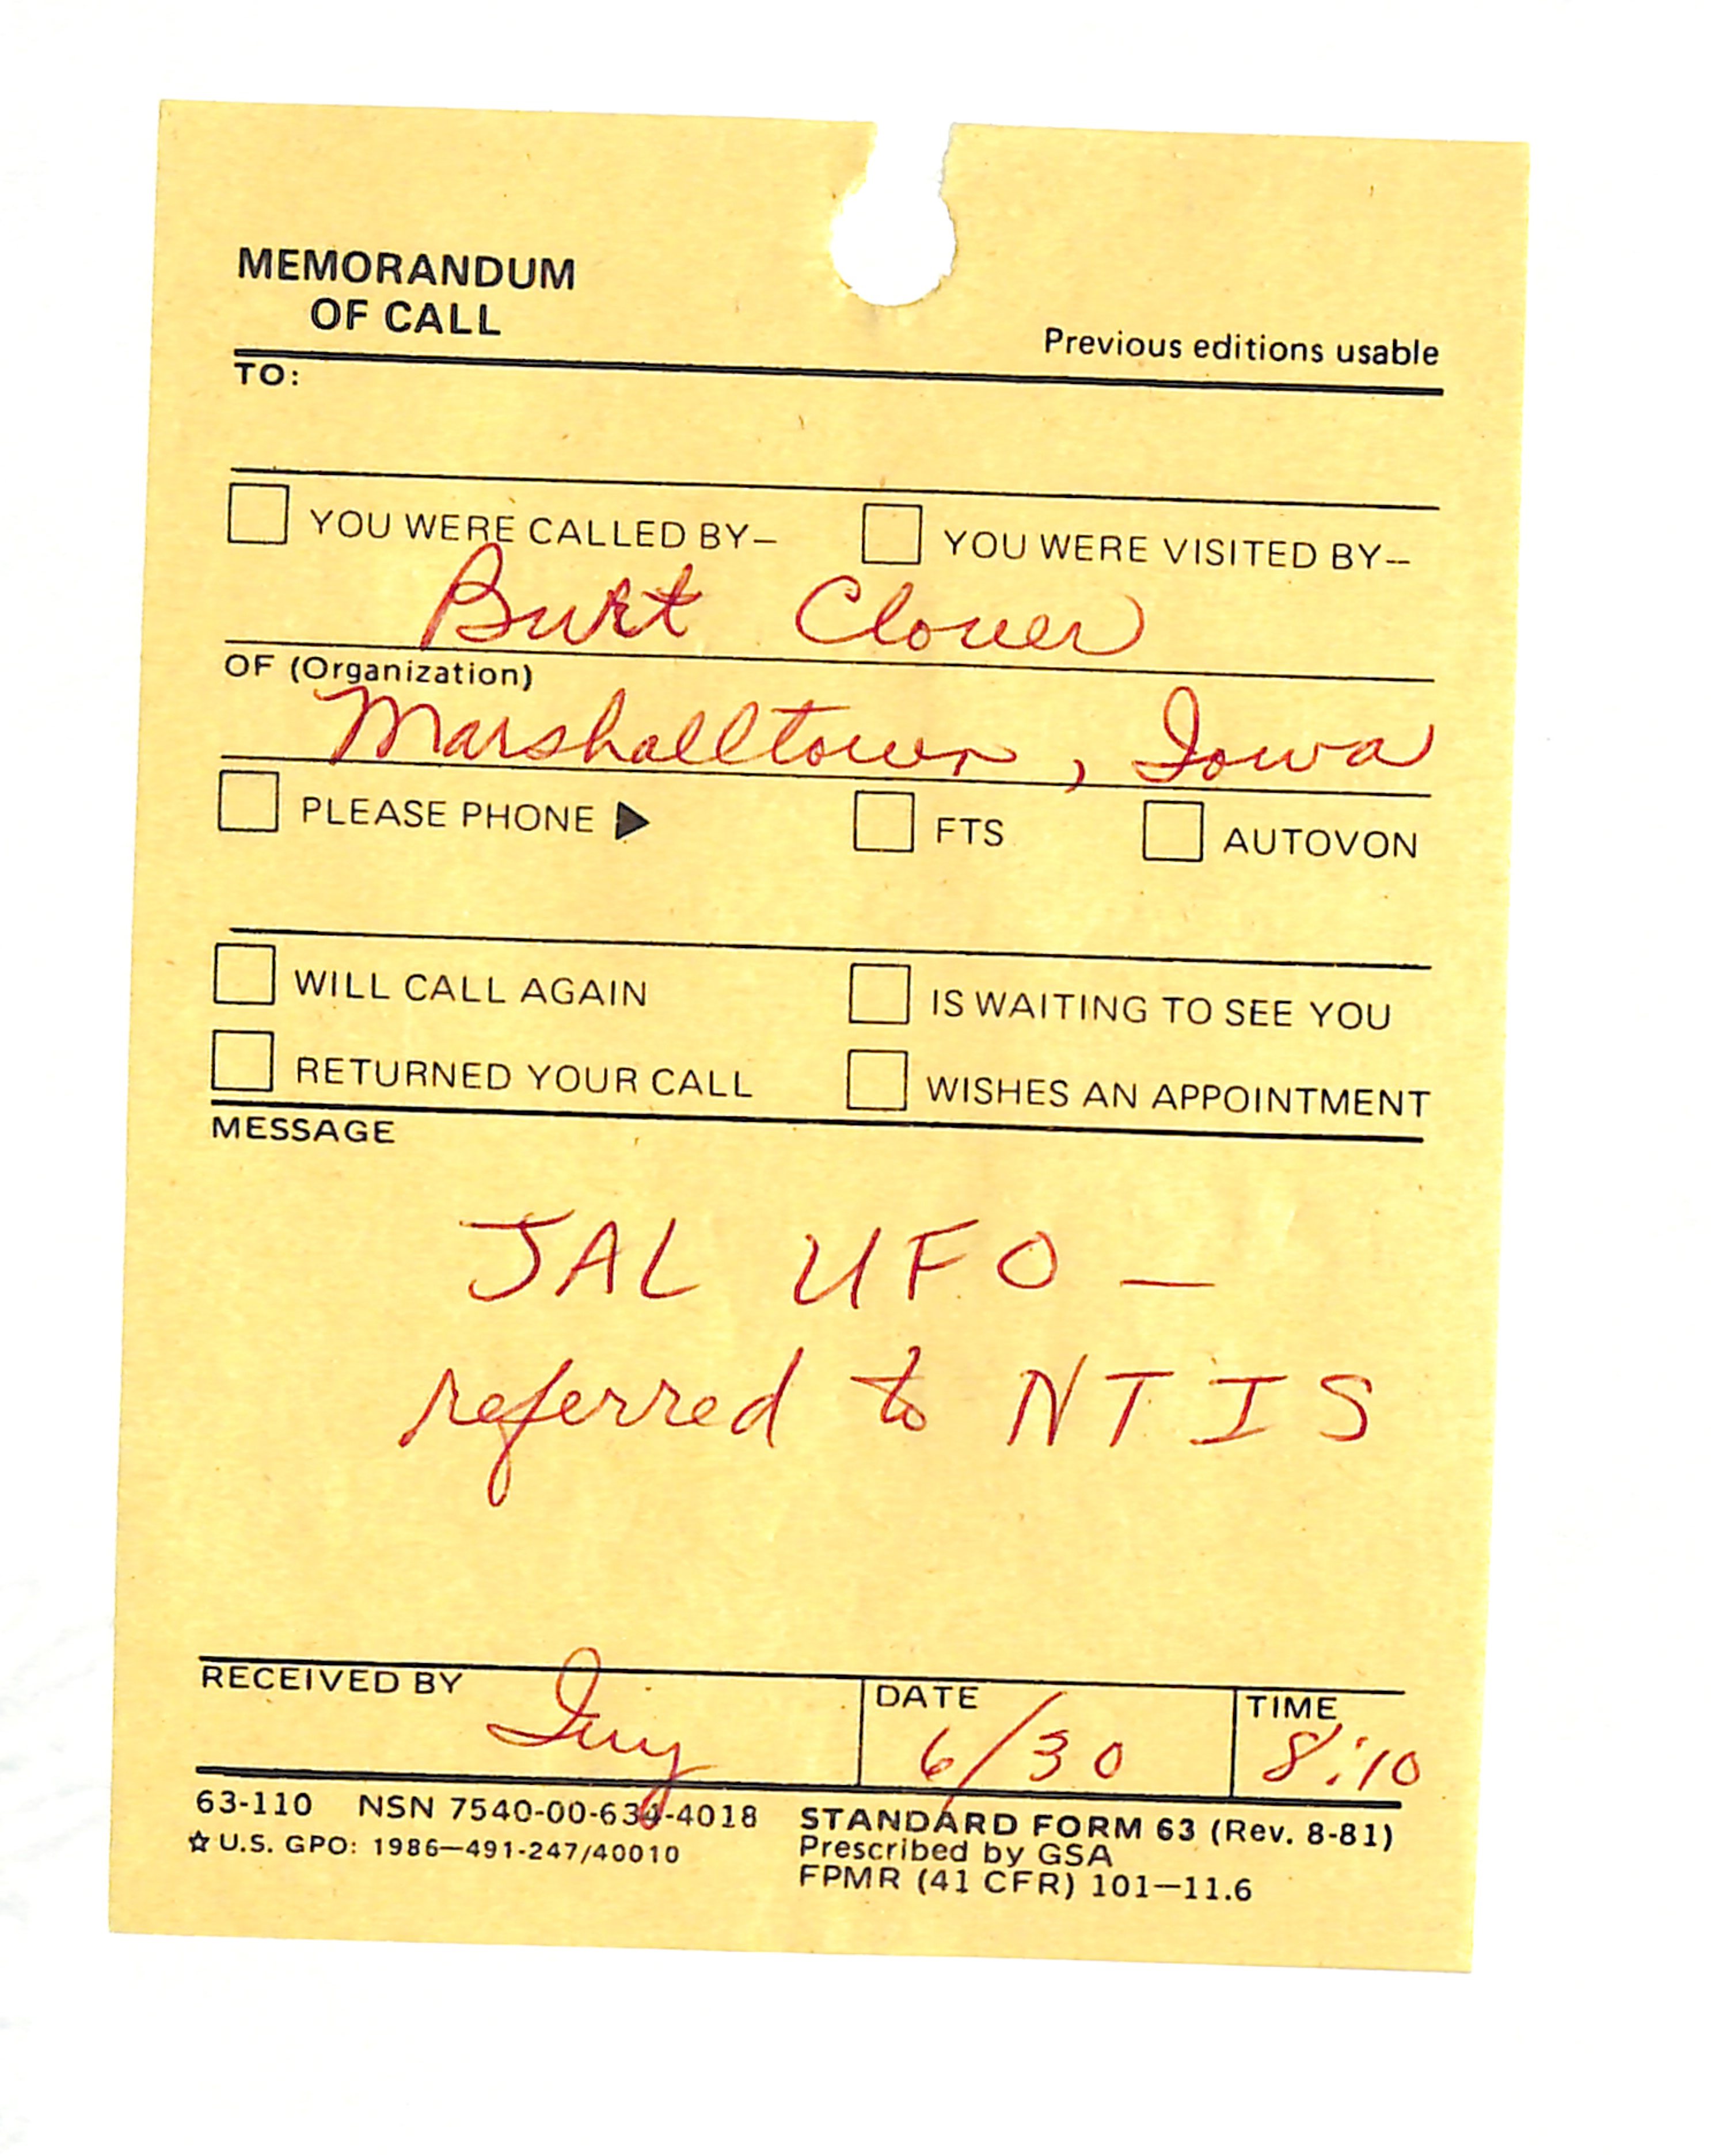 MEMORANDUM
OF CALL
Previous editions usable
TO:
YOU WERE CALLED BY– YOU WERE VISITED BY--
Burt Clover
OF (Organization)
Marshalltown, Iowa
PLEASE PHONE ▶ FTS AUTOVON
WILL CALL AGAIN IS WAITING TO SEE YOU
RETURNED YOUR CALL WISHES AN APPOINTMENT
MESSAGE
JAL UFO —
referred to NTIS
RECEIVED BY DATE 6/30 TIME 8:10
63-110 NSN 7540-00-634-4018 STANDARD FORM 63 (Rev. 8-81)
☆ U.S. GPO: 1986—491-247/40010 Prescribed by GSA
FPMR (41 CFR) 101—11.6